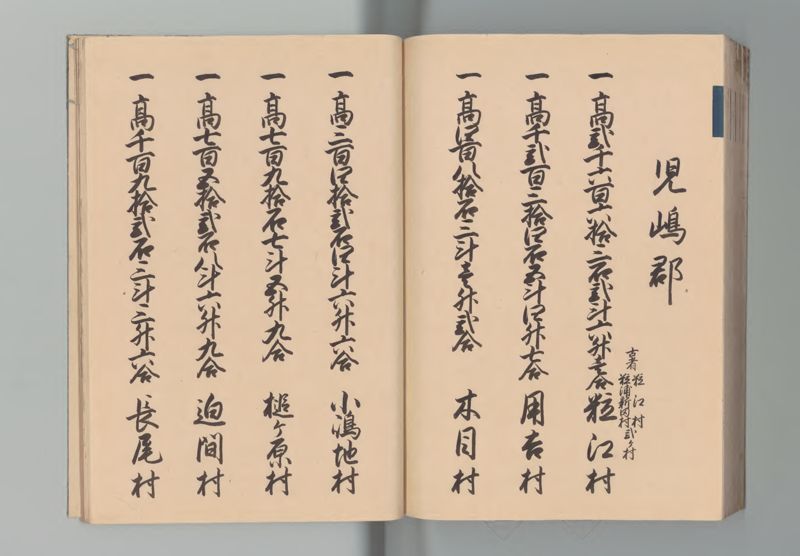 児嶋郡
一高弐千六百六拾三石弐斗六升壱合 粒江村
古者 粒江村
粒浦新田村 弐ケ村
一高千弐百三拾四石五斗四升七合 用吉村
一高四百八拾石三斗壱升弐合 木目村
一高三百四拾弐石四斗六升六合 小嶋地村
一高七百九拾石七斗五升九合 槌ケ原村
一高七百五拾弐石八斗六升九合 迫間村
一高千百九拾弐石三斗三升六合 長尾村